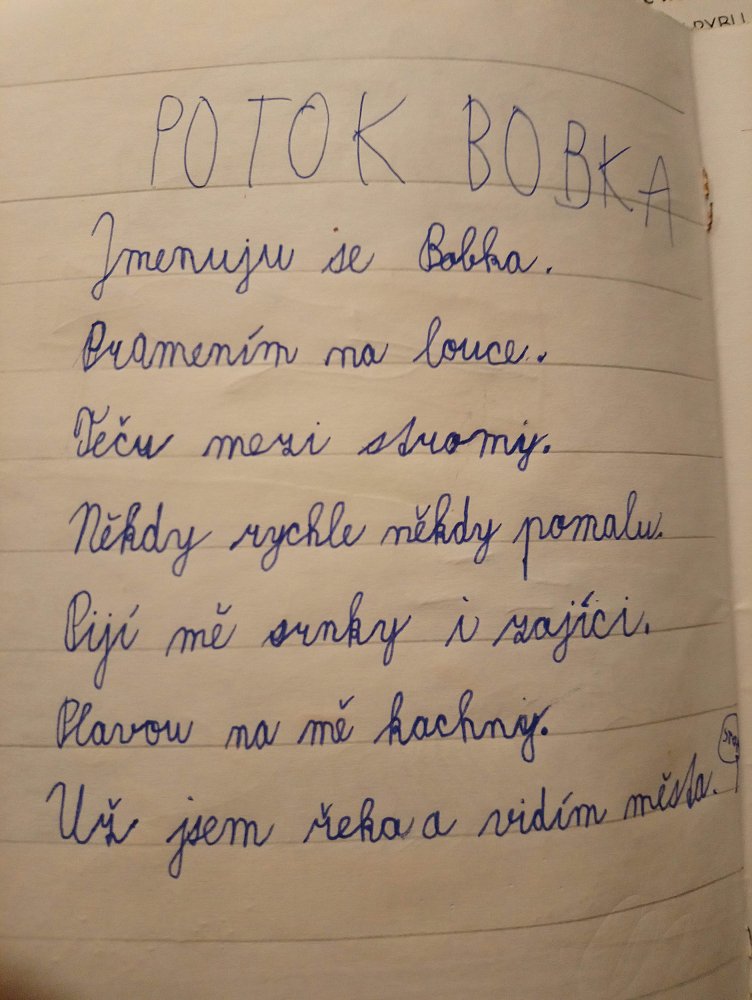 POTOK BOBKA
Jmenuju se Bobka.
Pramením na louce.
Teču mezi stromy.
Někdy rychle někdy pomalu.
Pijí mě srnky i zajíci.
Plavou na mě kachny.
Už jsem řeka a vidím města.